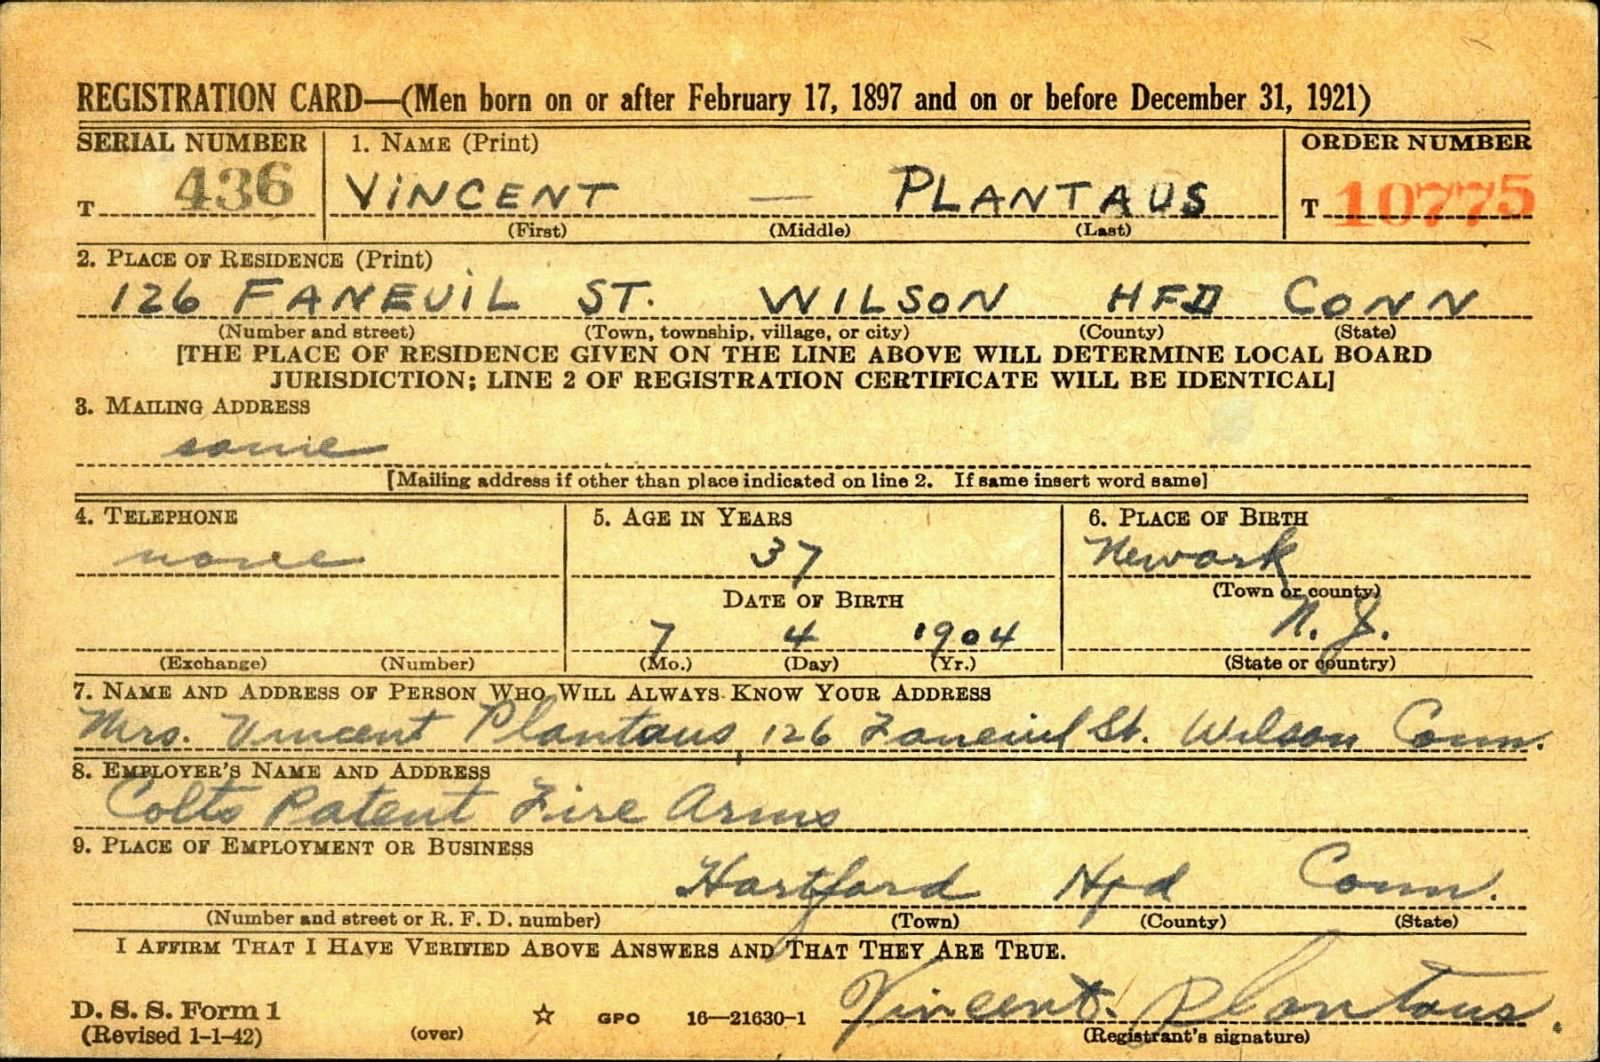 REGISTRATION CARD—(Men born on or after February 17, 1897 and on or before December 31, 1921)
SERIAL NUMBER 1. NAME (Print) ORDER NUMBER
T 436 VINCENT — PLANTAUS T 10775
(First) (Middle) (Last)
2. PLACE OF RESIDENCE (Print)
126 FANEUIL ST. WILSON HFD CONN
(Number and street) (Town, township, village, or city) (County) (State)
[THE PLACE OF RESIDENCE GIVEN ON THE LINE ABOVE WILL DETERMINE LOCAL BOARD
JURISDICTION; LINE 2 OF REGISTRATION CERTIFICATE WILL BE IDENTICAL]
3. MAILING ADDRESS
same
[Mailing address if other than place indicated on line 2. If same insert word same]
4. TELEPHONE 5. AGE IN YEARS 6. PLACE OF BIRTH
none 37 Newark
DATE OF BIRTH (Town or county)
7 4 1904 N. J.
(Exchange) (Number) (Mo.) (Day) (Yr.) (State or country)
7. NAME AND ADDRESS OF PERSON WHO WILL ALWAYS KNOW YOUR ADDRESS
Mrs. Vincent Plantaus, 126 Faneuil St. Wilson Conn.
8. EMPLOYER'S NAME AND ADDRESS
Colts Patent Fire Arms
9. PLACE OF EMPLOYMENT OR BUSINESS
Hartford Hfd Conn.
(Number and street or R. F. D. number) (Town) (County) (State)
I AFFIRM THAT I HAVE VERIFIED ABOVE ANSWERS AND THAT THEY ARE TRUE.
D. S. S. Form 1
(Revised 1-1-42) (over) ☆ GPO 16—21630-1 Vincent Plantaus.
(Registrant's signature)